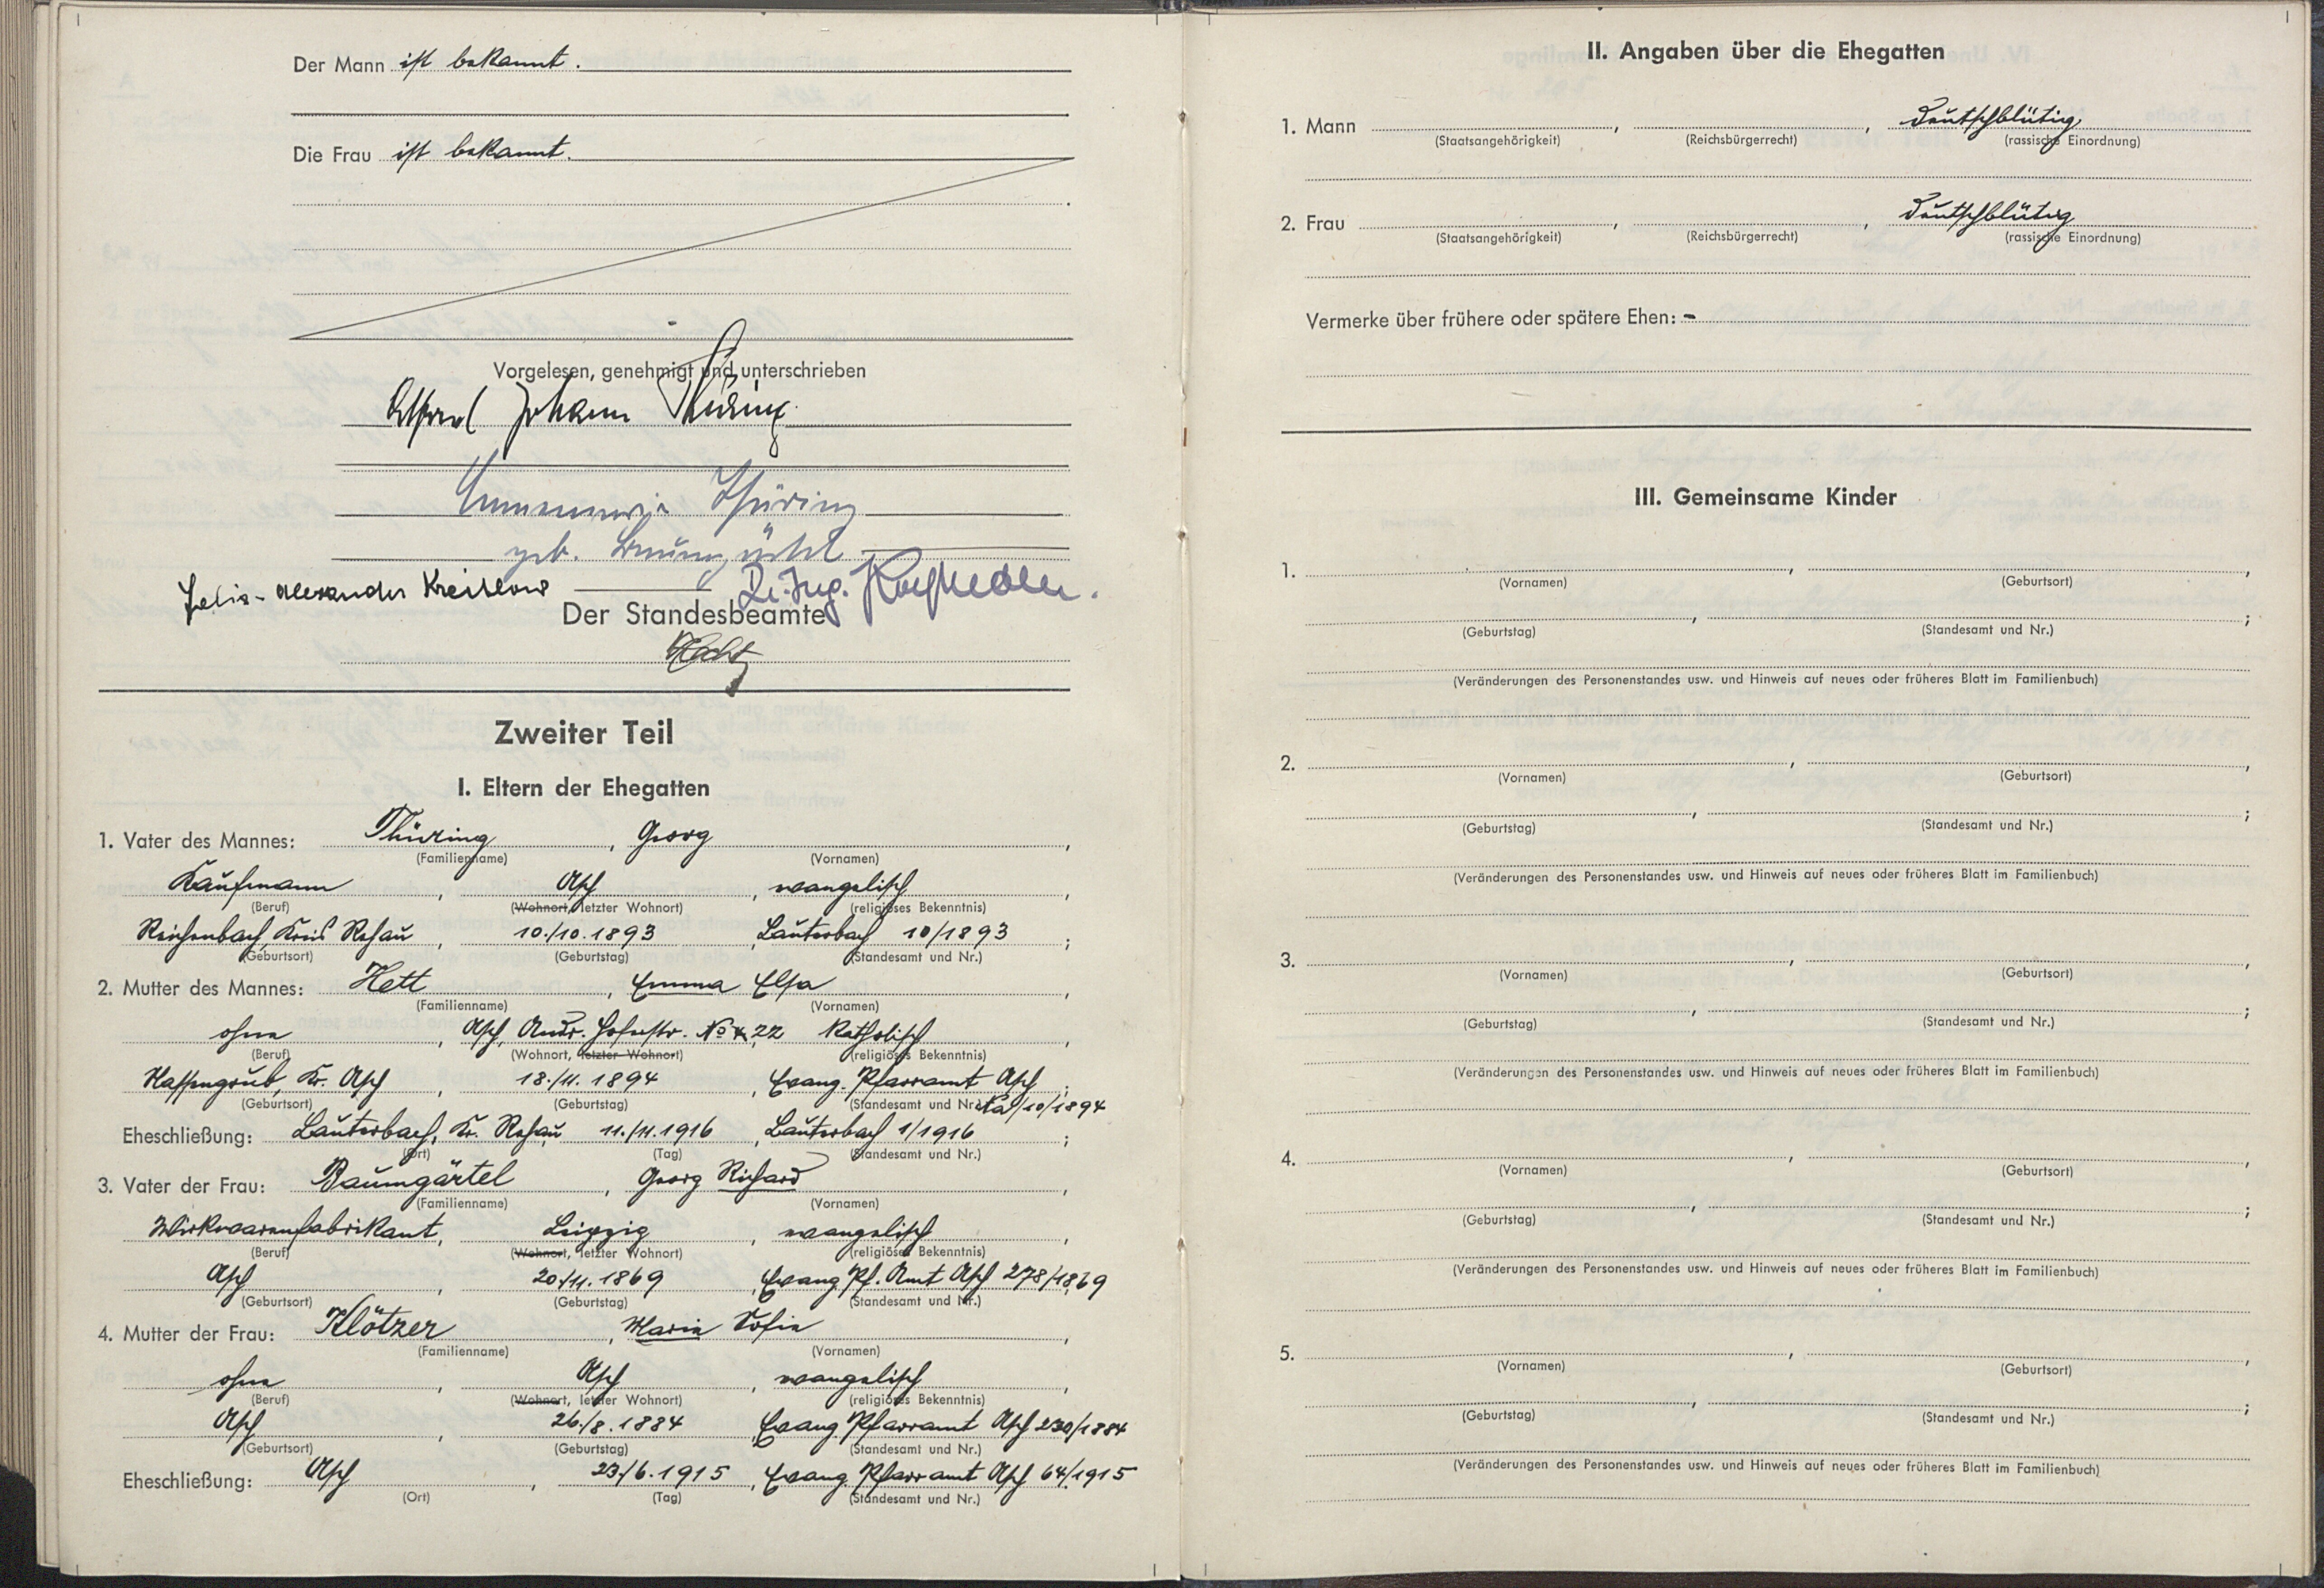 Der Mann ist bekannt.
Die Frau ist bekannt.
Vorgelesen, genehmigt und unterschrieben
Johann Thüring
Thüring
geb.
Felix-Alexander
Dr. Ing.
Der Standesbeamte
Zweiter Teil
I. Eltern der Ehegatten
1. Vater des Mannes: Thüring, Georg,
(Familienname) (Vornamen)
Kaufmann, Asch, evangelisch,
(Beruf) (Wohnort, letzter Wohnort) (religiöses Bekenntnis)
Reichenbach, Kreis Rehau, 10./10.1893, Lauterbach 10/1893;
(Geburtsort) (Geburtstag) (Standesamt und Nr.)
2. Mutter des Mannes: Hett, Emma Elsa,
(Familienname) (Vornamen)
ohne, Asch, Andr. Hoferstr. No 22 katholisch,
(Beruf) (Wohnort, letzter Wohnort) (religiöses Bekenntnis)
Hassengrub, Kr. Asch, 18./11.1894, Evang. Pfarramt Asch;
(Geburtsort) (Geburtstag) (Standesamt und Nr.) /10/1894
Eheschließung: Lauterbach, Kr. Rehau 11./11.1916, Lauterbach 1/1916;
(Ort) (Tag) (Standesamt und Nr.)
3. Vater der Frau: Baumgärtel, Georg Richard,
(Familienname) (Vornamen)
Wirkwarenfabrikant, Leipzig, evangelisch,
(Beruf) (Wohnort, letzter Wohnort) (religiöses Bekenntnis)
Asch, 20./11.1869, Evang. Pf. Amt Asch 278/1869
(Geburtsort) (Geburtstag) (Standesamt und Nr.)
4. Mutter der Frau: Klötzer, Maria Sofie,
(Familienname) (Vornamen)
ohne, Asch, evangelisch,
(Beruf) (Wohnort, letzter Wohnort) (religiöses Bekenntnis)
Asch, 26./8.1884, Evang. Pfarramt Asch 230/1884
(Geburtsort) (Geburtstag) (Standesamt und Nr.)
Eheschließung: Asch, 23./6.1915, Evang. Pfarramt Asch 64/1915
(Ort) (Tag) (Standesamt und Nr.)
II. Angaben über die Ehegatten
1. Mann , , Deutschblütig
(Staatsangehörigkeit) (Reichsbürgerrecht) (rassische Einordnung)
2. Frau , , Deutschblütig
(Staatsangehörigkeit) (Reichsbürgerrecht) (rassische Einordnung)
Vermerke über frühere oder spätere Ehen: -
III. Gemeinsame Kinder
1. , ,
(Vornamen) (Geburtsort)
, ;
(Geburtstag) (Standesamt und Nr.)
(Veränderungen des Personenstandes usw. und Hinweis auf neues oder früheres Blatt im Familienbuch)
2. , ,
(Vornamen) (Geburtsort)
, ;
(Geburtstag) (Standesamt und Nr.)
(Veränderungen des Personenstandes usw. und Hinweis auf neues oder früheres Blatt im Familienbuch)
3. , ,
(Vornamen) (Geburtsort)
, ;
(Geburtstag) (Standesamt und Nr.)
(Veränderungen des Personenstandes usw. und Hinweis auf neues oder früheres Blatt im Familienbuch)
4. , ,
(Vornamen) (Geburtsort)
, ;
(Geburtstag) (Standesamt und Nr.)
(Veränderungen des Personenstandes usw. und Hinweis auf neues oder früheres Blatt im Familienbuch)
5. , ,
(Vornamen) (Geburtsort)
, ;
(Geburtstag) (Standesamt und Nr.)
(Veränderungen des Personenstandes usw. und Hinweis auf neues oder früheres Blatt im Familienbuch)